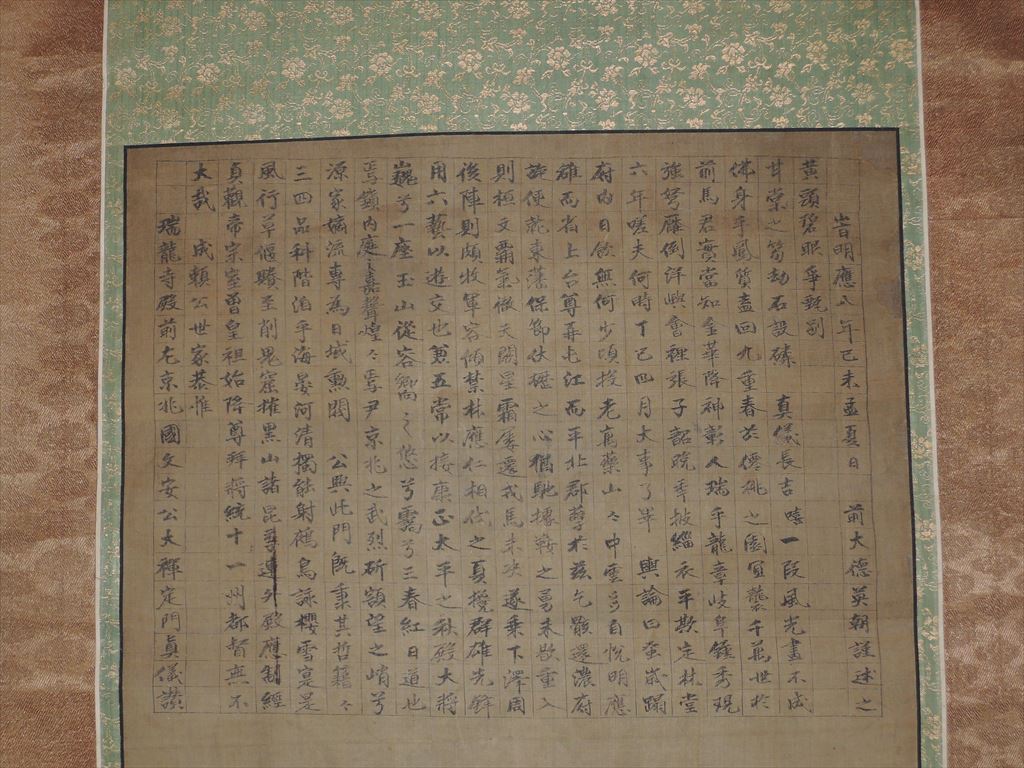 瑞龍寺殿前左京兆國文安公大禪定門眞儀讃
大哉　成頼公世家恭惟
貞觀帝宗室曽皇祖始降尊拜將統十一州都督無不
風行草偃至削鬼窟摧黒山諸昆連外敵應制經
三四品科階洎乎海晏河清獨能射鵰鳥詠櫻雪寔是
源家嫡流專為日域勲閥　公興此門既秉其哲藉々
焉鎭内庭嘉聲煌々焉尹京兆之武烈斫額望之峭兮
巍兮一座玉山從容嚮之悠兮靄兮三春紅日道也
用六藝以遊交也兼五常以接康正太平之秋殿大將
後陣則頗牧軍容傾禁林應仁相伐之夏攪群雄先鋒
則桓文覇氣徹天關星霜屡遷戎馬未决遂乗下澤周
旋便就東藩保節休櫪之心猶馳據鞍之勇未歇重入
雄而省上台尊屯江而平北郡於茲乞骸還濃府
府内日餘無何少頃投老烏藥山々中雲自悦明應
六年嗟夫何時丁巳四月大事了畢　輿論曰蹋
強弩雁例詳與會裡張子韶疏奉披緇衣平欺定林堂
前馬君實當知金華降神彰人瑞乎龍章岐阜鍾秀現
佛身乎鳳質盍回九重春於僊桃之園宜襲千萬世於
甘棠之蔭劫石設磷　真儀長吉嘻一段風光畫不成
黄頭碧眼爭甄別
旹明應八年己未孟夏日　前大德英朝謹述之